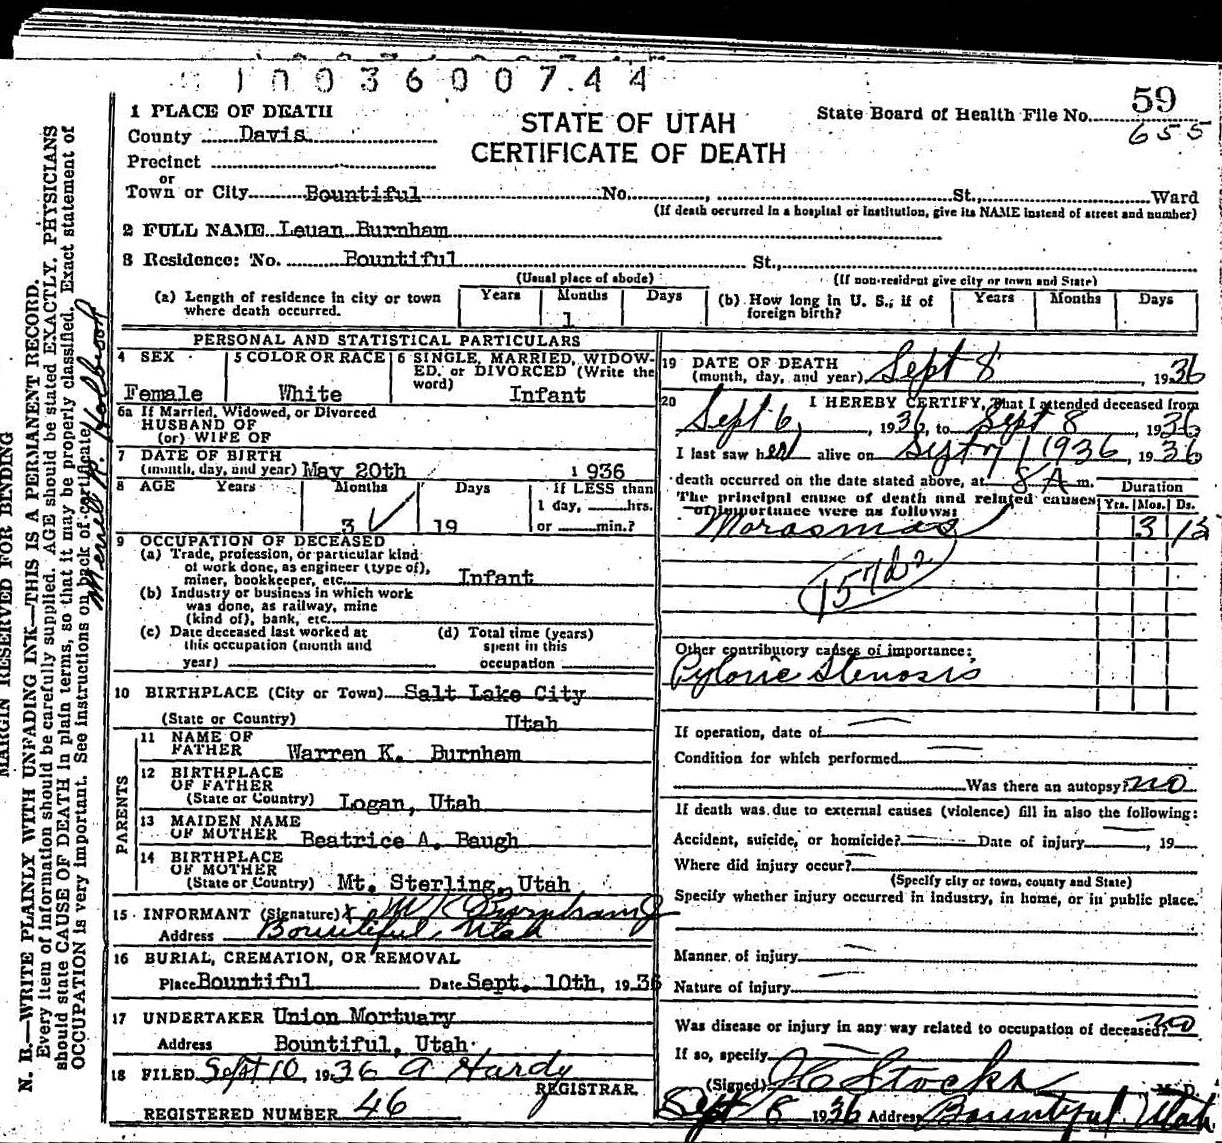 1003600744
59
1 PLACE OF DEATH
STATE OF UTAH
State Board of Health File No.
655
County Davis
CERTIFICATE OF DEATH
Precinct
or
Town or City Bountiful No. St., Ward
(If death occurred in a hospital or institution, give its NAME instead of street and number)
2 FULL NAME Leuan Burnham
3 Residence: No. Bountiful St.,
(Usual place of abode) (If non-resident give city or town and State)
(a) Length of residence in city or town where death occurred. Years Months 1 Days
(b) How long in U. S., if of foreign birth? Years Months Days
PERSONAL AND STATISTICAL PARTICULARS
4 SEX Female
5 COLOR OR RACE White
6 SINGLE, MARRIED, WIDOWED, or DIVORCED (Write the word) Infant
6a If Married, Widowed, or Divorced
HUSBAND OF
(or) WIFE OF
7 DATE OF BIRTH
(month, day, and year) May 20th 1936
8 AGE Years Months 3 Days 19 If LESS than
1 day, hrs.
or min.?
9 OCCUPATION OF DECEASED
(a) Trade, profession, or particular kind
of work done, as engineer (type of),
miner, bookkeeper, etc. Infant
(b) Industry or business in which work
was done, as railway, mine
(kind of), bank, etc.
(c) Date deceased last worked at
this occupation (month and
year)
(d) Total time (years)
spent in this
occupation
10 BIRTHPLACE (City or Town) Salt Lake City
(State or Country) Utah
PARENTS
11 NAME OF
FATHER Warren K. Burnham
12 BIRTHPLACE
OF FATHER
(State or Country) Logan, Utah
13 MAIDEN NAME
OF MOTHER Beatrice A. Baugh
14 BIRTHPLACE
OF MOTHER
(State or Country) Mt. Sterling, Utah
15 INFORMANT (Signature) x W K Burnham
Address Bountiful, Utah
16 BURIAL, CREMATION, OR REMOVAL
Place Bountiful Date Sept. 10th, 1936
17 UNDERTAKER Union Mortuary
Address Bountiful, Utah
18 FILED Sept 10, 1936 A Hardy
REGISTRAR.
REGISTERED NUMBER 46
19 DATE OF DEATH
(month, day, and year) Sept 8, 1936
20 I HEREBY CERTIFY, That I attended deceased from
Sept 6, 1936, to Sept 8, 1936
I last saw her alive on Sept 7 1936, 1936
death occurred on the date stated above, at 8 A m.
The principal cause of death and related causes
of importance were as follows:
Duration
Yrs. Mos. Ds.
Morasmas 3 15
Other contributory causes of importance:
Pyloric Stenosis
If operation, date of
Condition for which performed
Was there an autopsy? no
If death was due to external causes (violence) fill in also the following:
Accident, suicide, or homicide? Date of injury , 19
Where did injury occur?
(Specify city or town, county and State)
Specify whether injury occurred in industry, in home, or in public place.
Manner of injury
Nature of injury
Was disease or injury in any way related to occupation of deceased? no
If so, specify
(Signed) Stocks M. D.
Sept 8 1936 Address Bountiful Utah
MARGIN RESERVED FOR BINDING
N. B.—WRITE PLAINLY WITH UNFADING INK—THIS IS A PERMANENT RECORD.
Every item of information should be carefully supplied. AGE should be stated EXACTLY. PHYSICIANS
should state CAUSE OF DEATH in plain terms, so that it may be properly classified. Exact statement of
OCCUPATION is very important. See instructions on back of certificate.
Merrell P. Holbrook